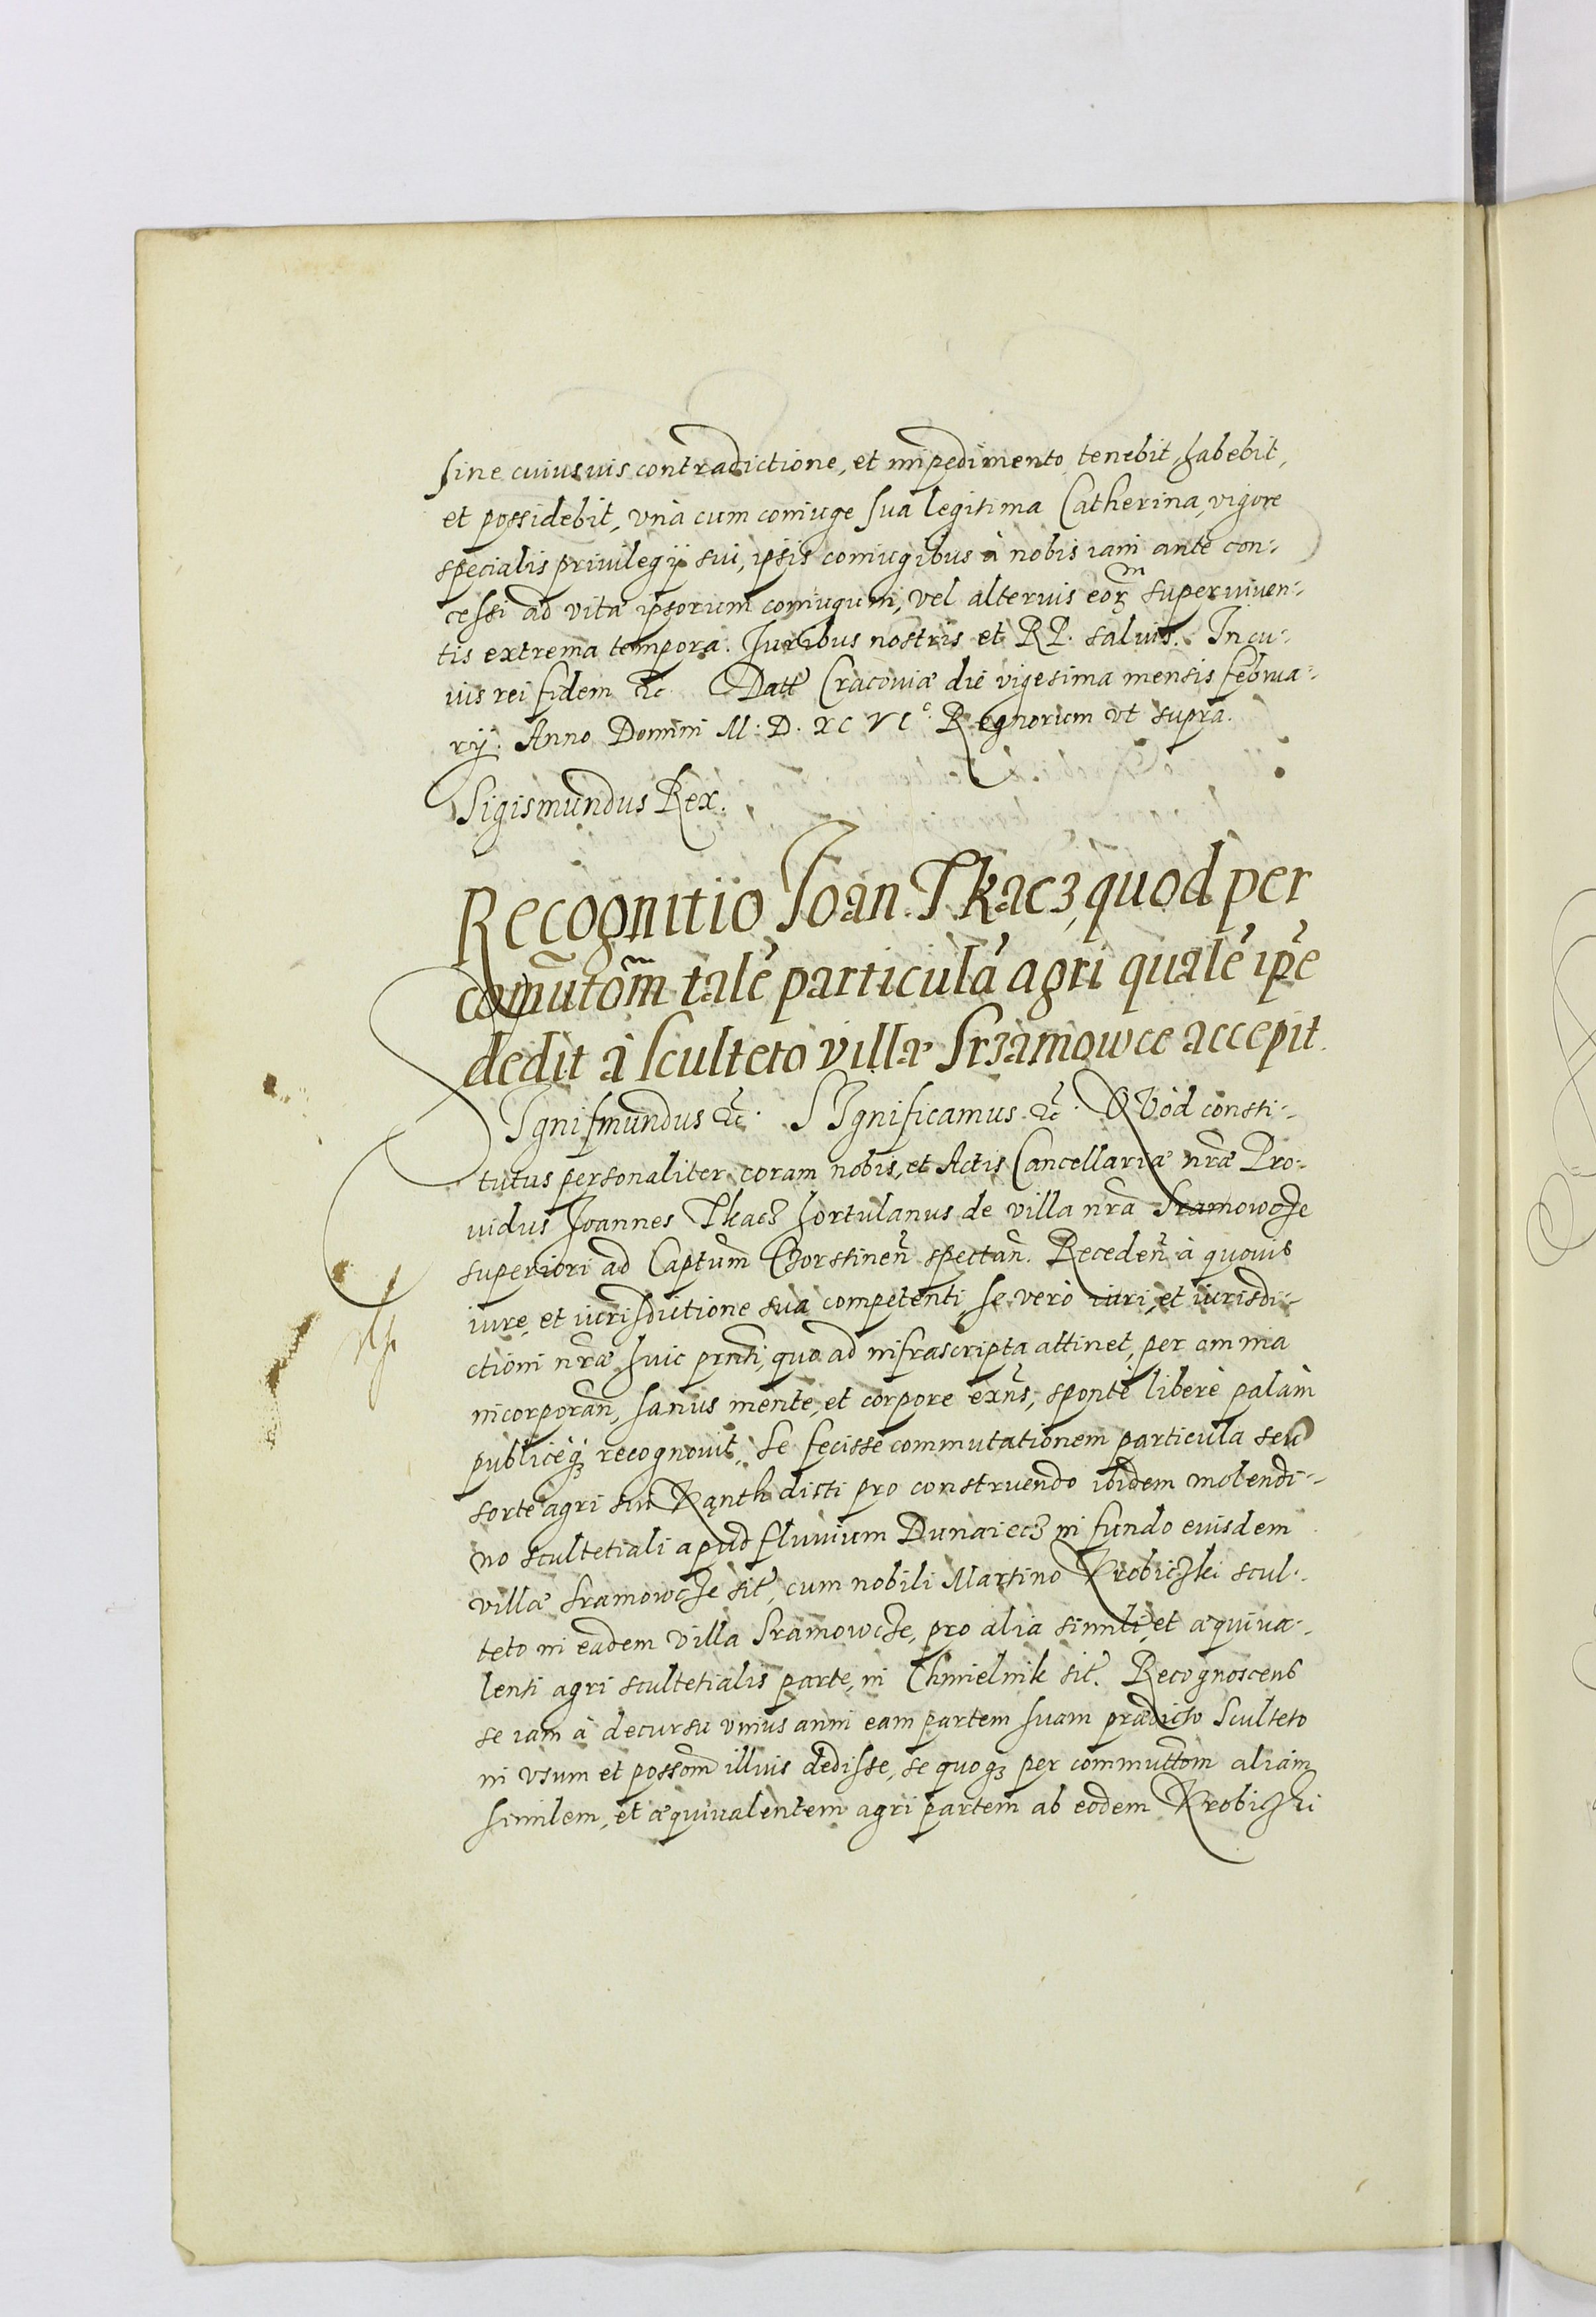 sine cuiusuis contradictione, et impedimento tenebit, habebit,
et possidebit, vnà cum coniuge sua legitima Catherina, vigore
specialis priuilegij sui, ipsis coniugibus à nobis iam ante con-
cessi ad vitæ ipsorum coniugum, vel alterius eor̃m superviuen-
tis extrema tempora. Iuribus nostris et RP. saluis. In cu-
ius rei fidem &c. Datt̃ Cracouiæ die vigesima mensis februa-
rij. Anno Domini M: D. XC VIᵒ. Regnorum vt supra.
Sigismundus Rex.
Recognitio Joan. Tkacz, quod per
com̃utom̃ talẽ particulã agri qualẽ ip̃e
dedit à sculteto villæ Srzamowce accepit.
SIgnismundus &c. SIgnificamus &c. QVòd consti-
tutus personaliter coram nobis, et Actis Cancellariæ nr̃æ Pro-
uidus Joannes Tkacz hortulanus de villa nr̃a Sramowcze
superiori ad Capt̃um Czorstineñ spectañ. Recedeñ à quouis
iure, et iurisdictione sua competenti, se verò iuri, et iurisdi-
ctioni nr̃æ huic prñti, quo ad infrascripta attinet, per omnia
incorporañ, sanus mente, et corpore exñs, spontè liberè palàm
publiceq; recognouit, se fecisse commutationem particula seu
sorte agri sui Kąnth dicti pro construendo ibidem molendi-
no scultetiali apud fluuium Dunaiecz in fundo euisdem
villæ Sramowcze sit̃, cum nobili Martino Krobiczki scul-
teto in eadem villa Sramowcze, pro alia simili, et æquiua-
lenti agri scultetialis parte, in Chmielnik sit̃. Recognoscens
se iam à decursu vnius anni eam partem suam prædicto Sculteto
in vsum et possom̃ illius dedisse, se quoq; per commutt̃om aliam
similem, et æquiualentem agri partem ab eodem Krobiczki